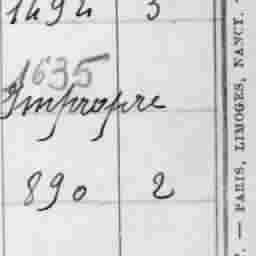 1494 3
1635
Impropre
890 2
— PARIS, LIMOGES, NANCY.